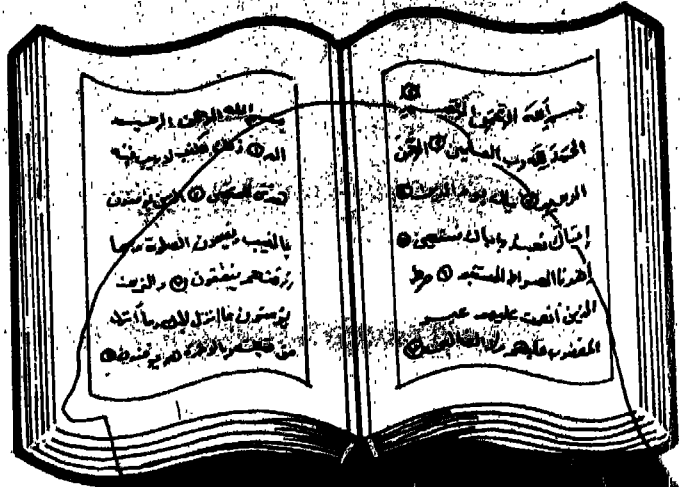 بسم الله الرحمن
الحمد لله رب العلمين ② الرحمن
الرحيم
إياك نعبد وإياك نستعين ⑤
اهدنا الصراط المستقيم ⑥ صرط
الذين أنعمت عليهم غير
المغضوب عليهم ولا الضالين ⑦
بسم الله الرحمن الرحيم
الم ① ذلك الكتب لا ريب فيه
هدى للمتقين ② الذين يؤمنون
بالغيب ويقيمون الصلوة ومما
رزقنهم ينفقون ③ والذين
يؤمنون بما انزل اليك وما أنزل
من قبلك